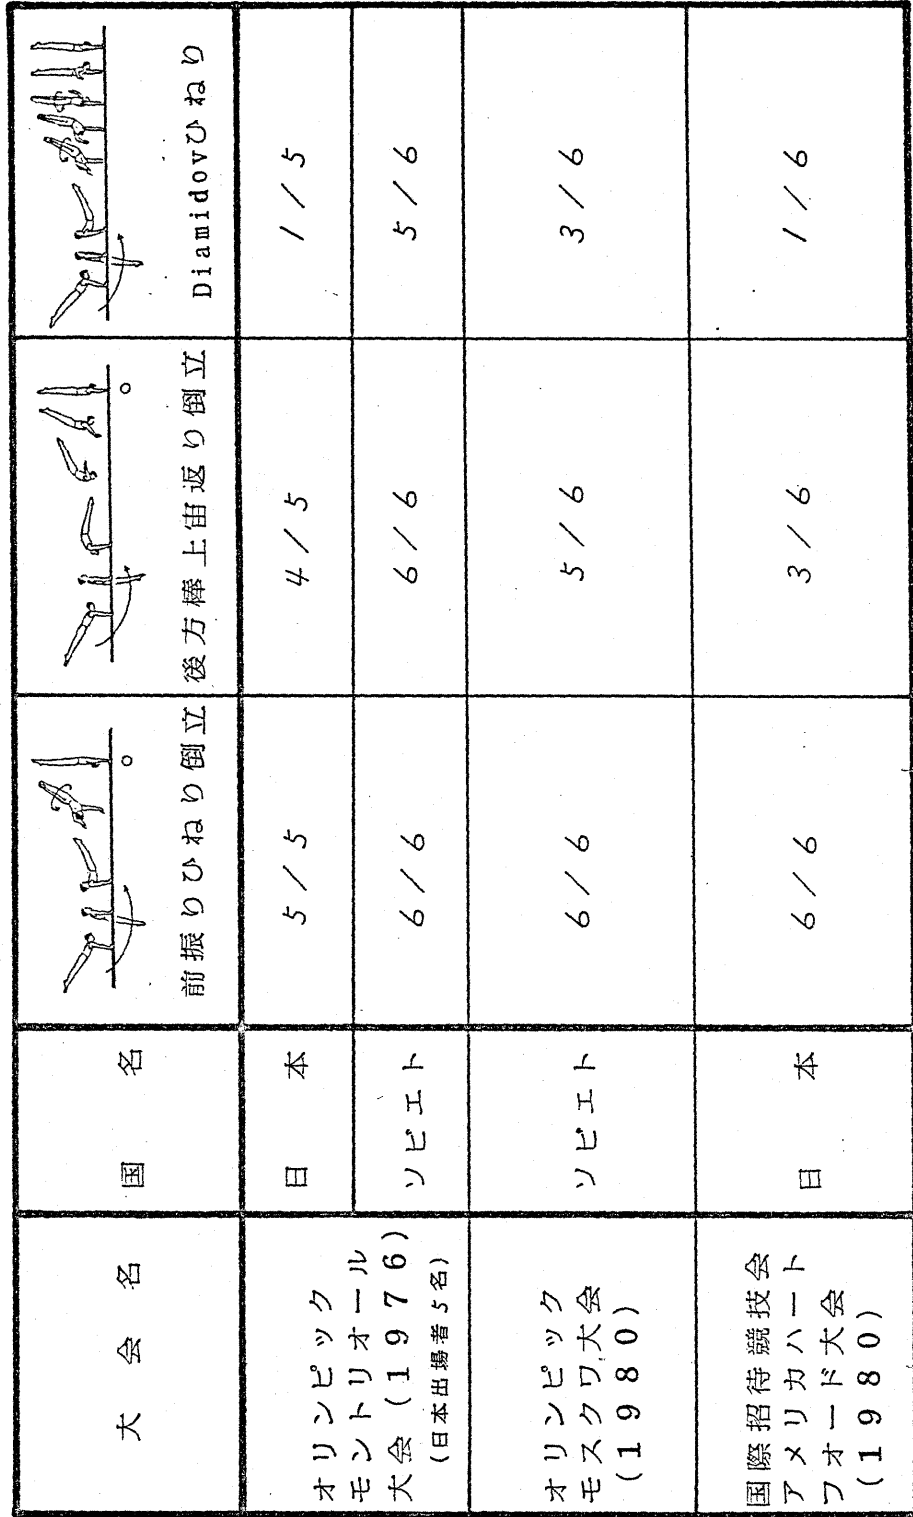 大会名
国名
前振りひねり倒立
後方棒上宙返り倒立
Diamidovひねり
オリンピック
モントリオール
大会(1976)
(日本出場者5名)
日本
5/5
4/5
1/5
ソビエト
6/6
6/6
5/6
オリンピック
モスクワ大会
(1980)
ソビエト
6/6
5/6
3/6
国際招待競技会
アメリカハート
フォード大会
(1980)
日本
6/6
3/6
1/6